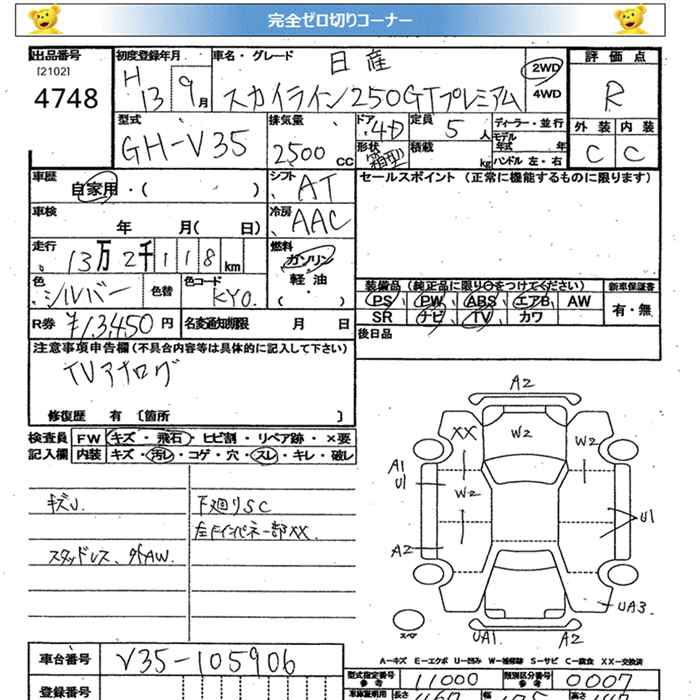 完全ゼロ切りコーナー
出品番号 初度登録年月 車名・グレード 日産 評価点
[2102] H 13 9月 スカイライン250GTプレミアム 2WD R
4748 4WD
型式 排気量 ドア 定員 ディーラー・並行 外装 内装
GH-V35 2500cc 4D 5人 モデル年式 年 C C
形状 箱型 積載 kg ハンドル 左・右
車歴 自家用・( ) シフト AT セールスポイント (正常に機能するものに限ります)
車検 年 月( 日) 冷房 AAC
走行 13万2千118km 燃料 ガソリン
軽油
( )
色 シルバー 色替 色コード KY0. 装備品 (純正品に限り○をつけてください) 新車保証書
PS PW ABS エアB AW 有・無
R券 ¥13450円 名変通知期限 月 日 SR ナビ TV カワ
注意事項申告欄 (不具合内容等は具体的に記入して下さい) 後日品
TVアナログ
修復歴 有 [箇所 ]
検査員 FW キズ・飛石・ヒビ割・リペア跡・×要
記入欄 内装 キズ・汚レ・コゲ・穴・スレ・キレ・破レ
キズU. 下廻りSC
左ドインパネ一部XX.
スタッドレス、外AW.
A2
XX W2 W2
A1
U1 W2
U1
A2
UA3.
スペア UA1. A2
A−キズ E−エクボ U−凹み W−補修跡 S−サビ C−腐食 XX−交換済
車台番号 V35-105906 型式指定番号 参考 11000 類別区分番号 参考 0007
登録番号 車庫証明用 長さ 幅 高さ